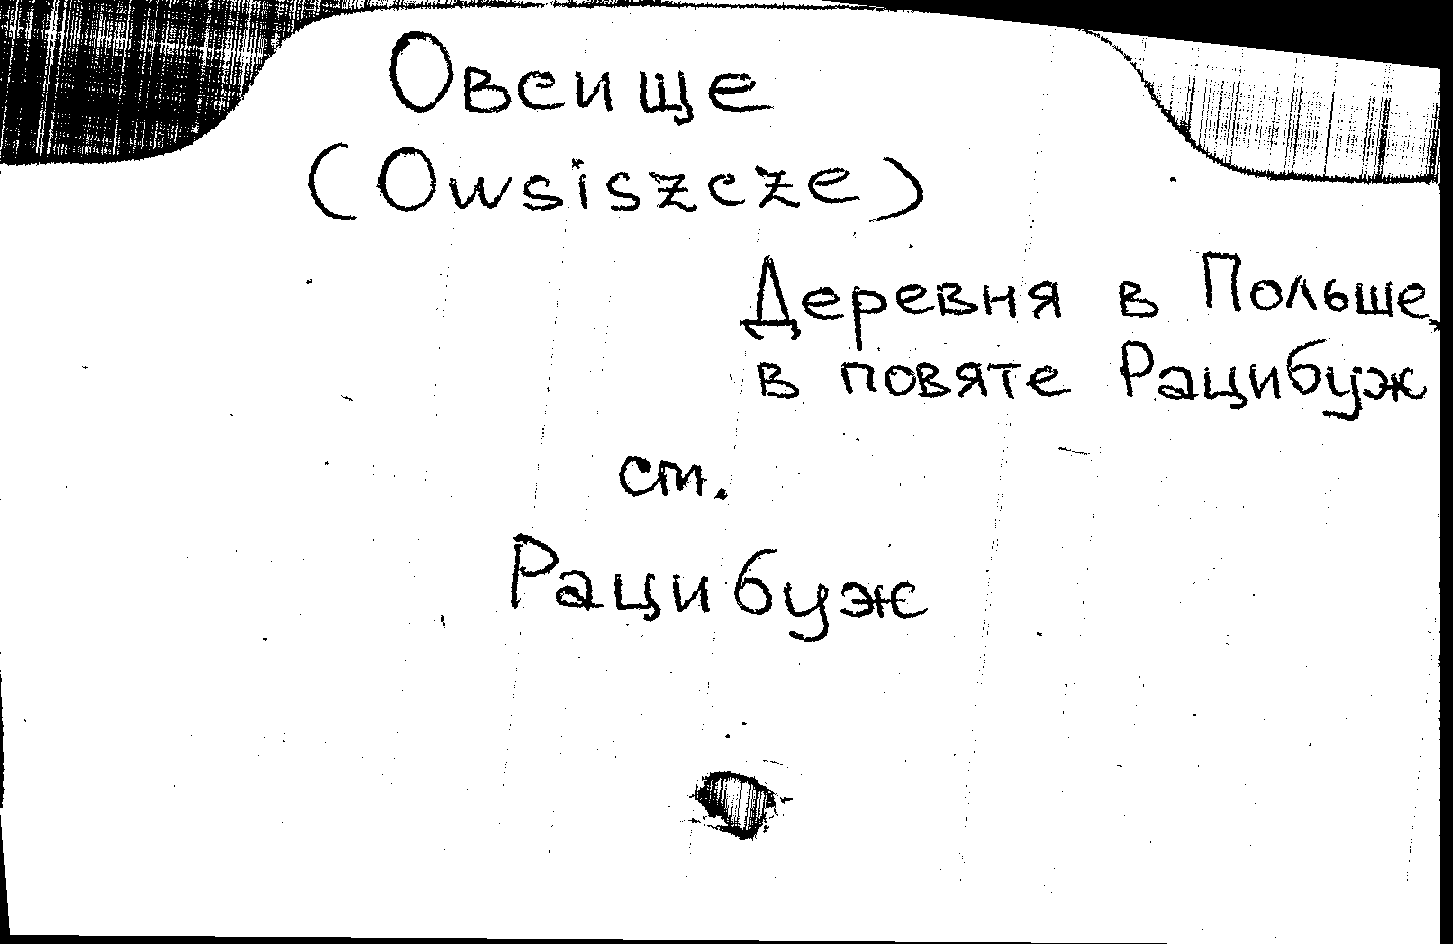 Овсище
(Owsiszcze)
Деревня в Польше,
в повяте Рацибуж
ст.
Рацибуж